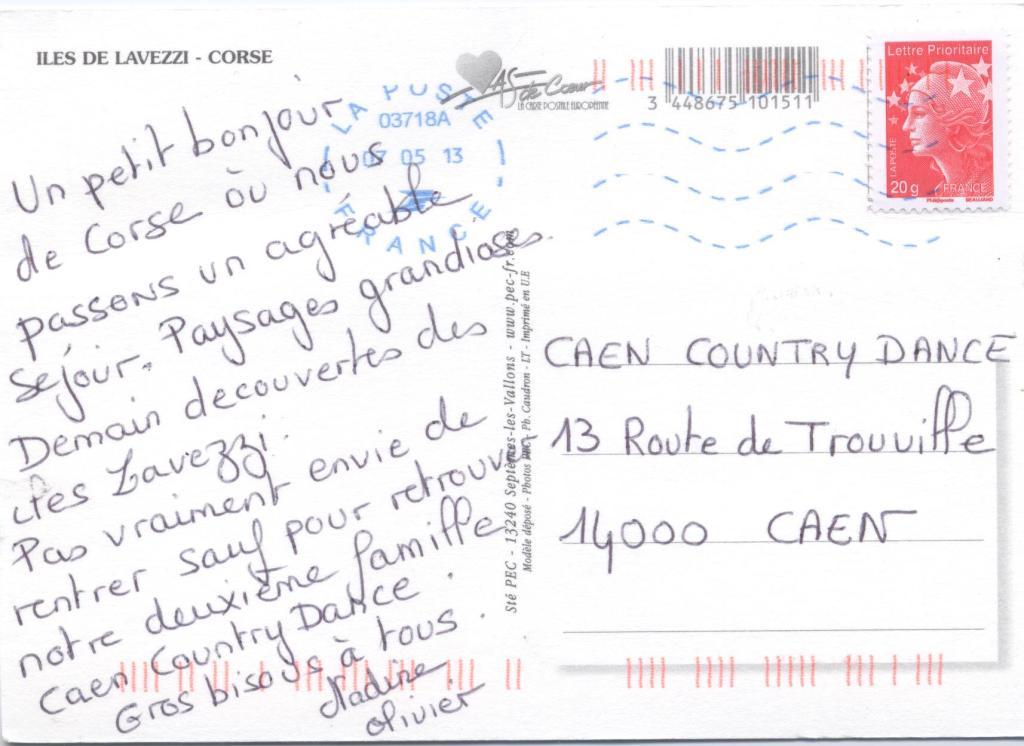 ILES DE LAVEZZI - CORSE
Un petit bonjour
de Corse où nous
passons un agréable
séjour. Paysages grandioses.
Demain decouvertes des
îles Lavezzi.
Pas vraiment envie de
rentrer sauf pour retrouver
notre deuxième famille
Caen Country Dance.
Gros bisous à tous.
Nadine
Olivier
LA POSTE
03718A
07 05 13
FRANCE
AS de Coeur
LA CARTE POSTALE EUROPÉENNE
3 448675 101511
Lettre Prioritaire
LA POSTE
20 g
FRANCE
Phil@poste
BEAUJARD
Sté PEC - 13240 Septèmes-les-Vallons - www.pec-fr.com
Modèle déposé - Photos PEC - Ph. Caudron - LT - Imprimé en U.E
CAEN COUNTRY DANCE
13 Route de Trouville
14000 CAEN